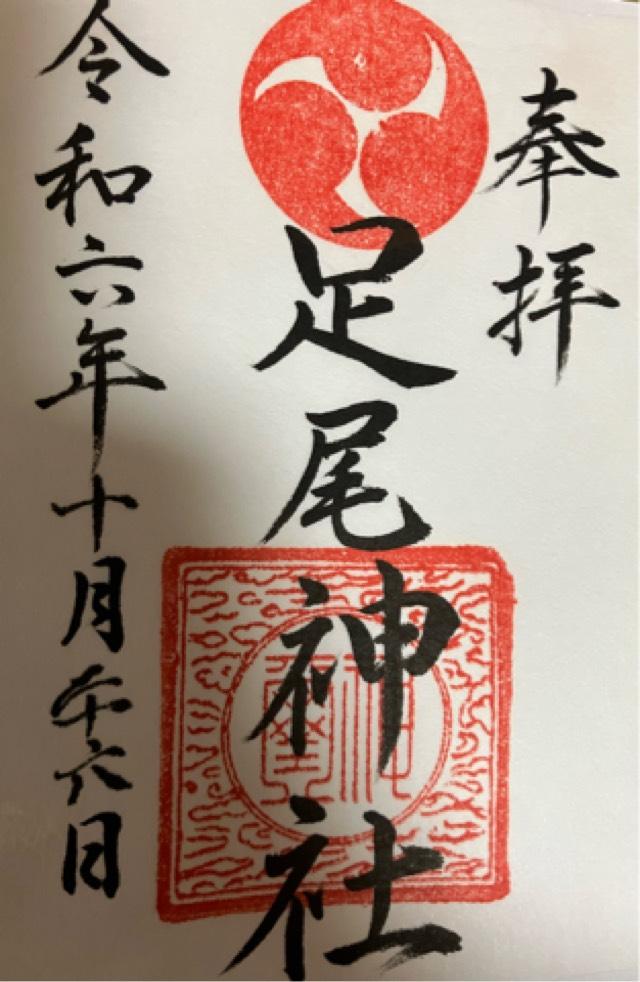 奉拝
足尾神社
令和六年十月二十六日